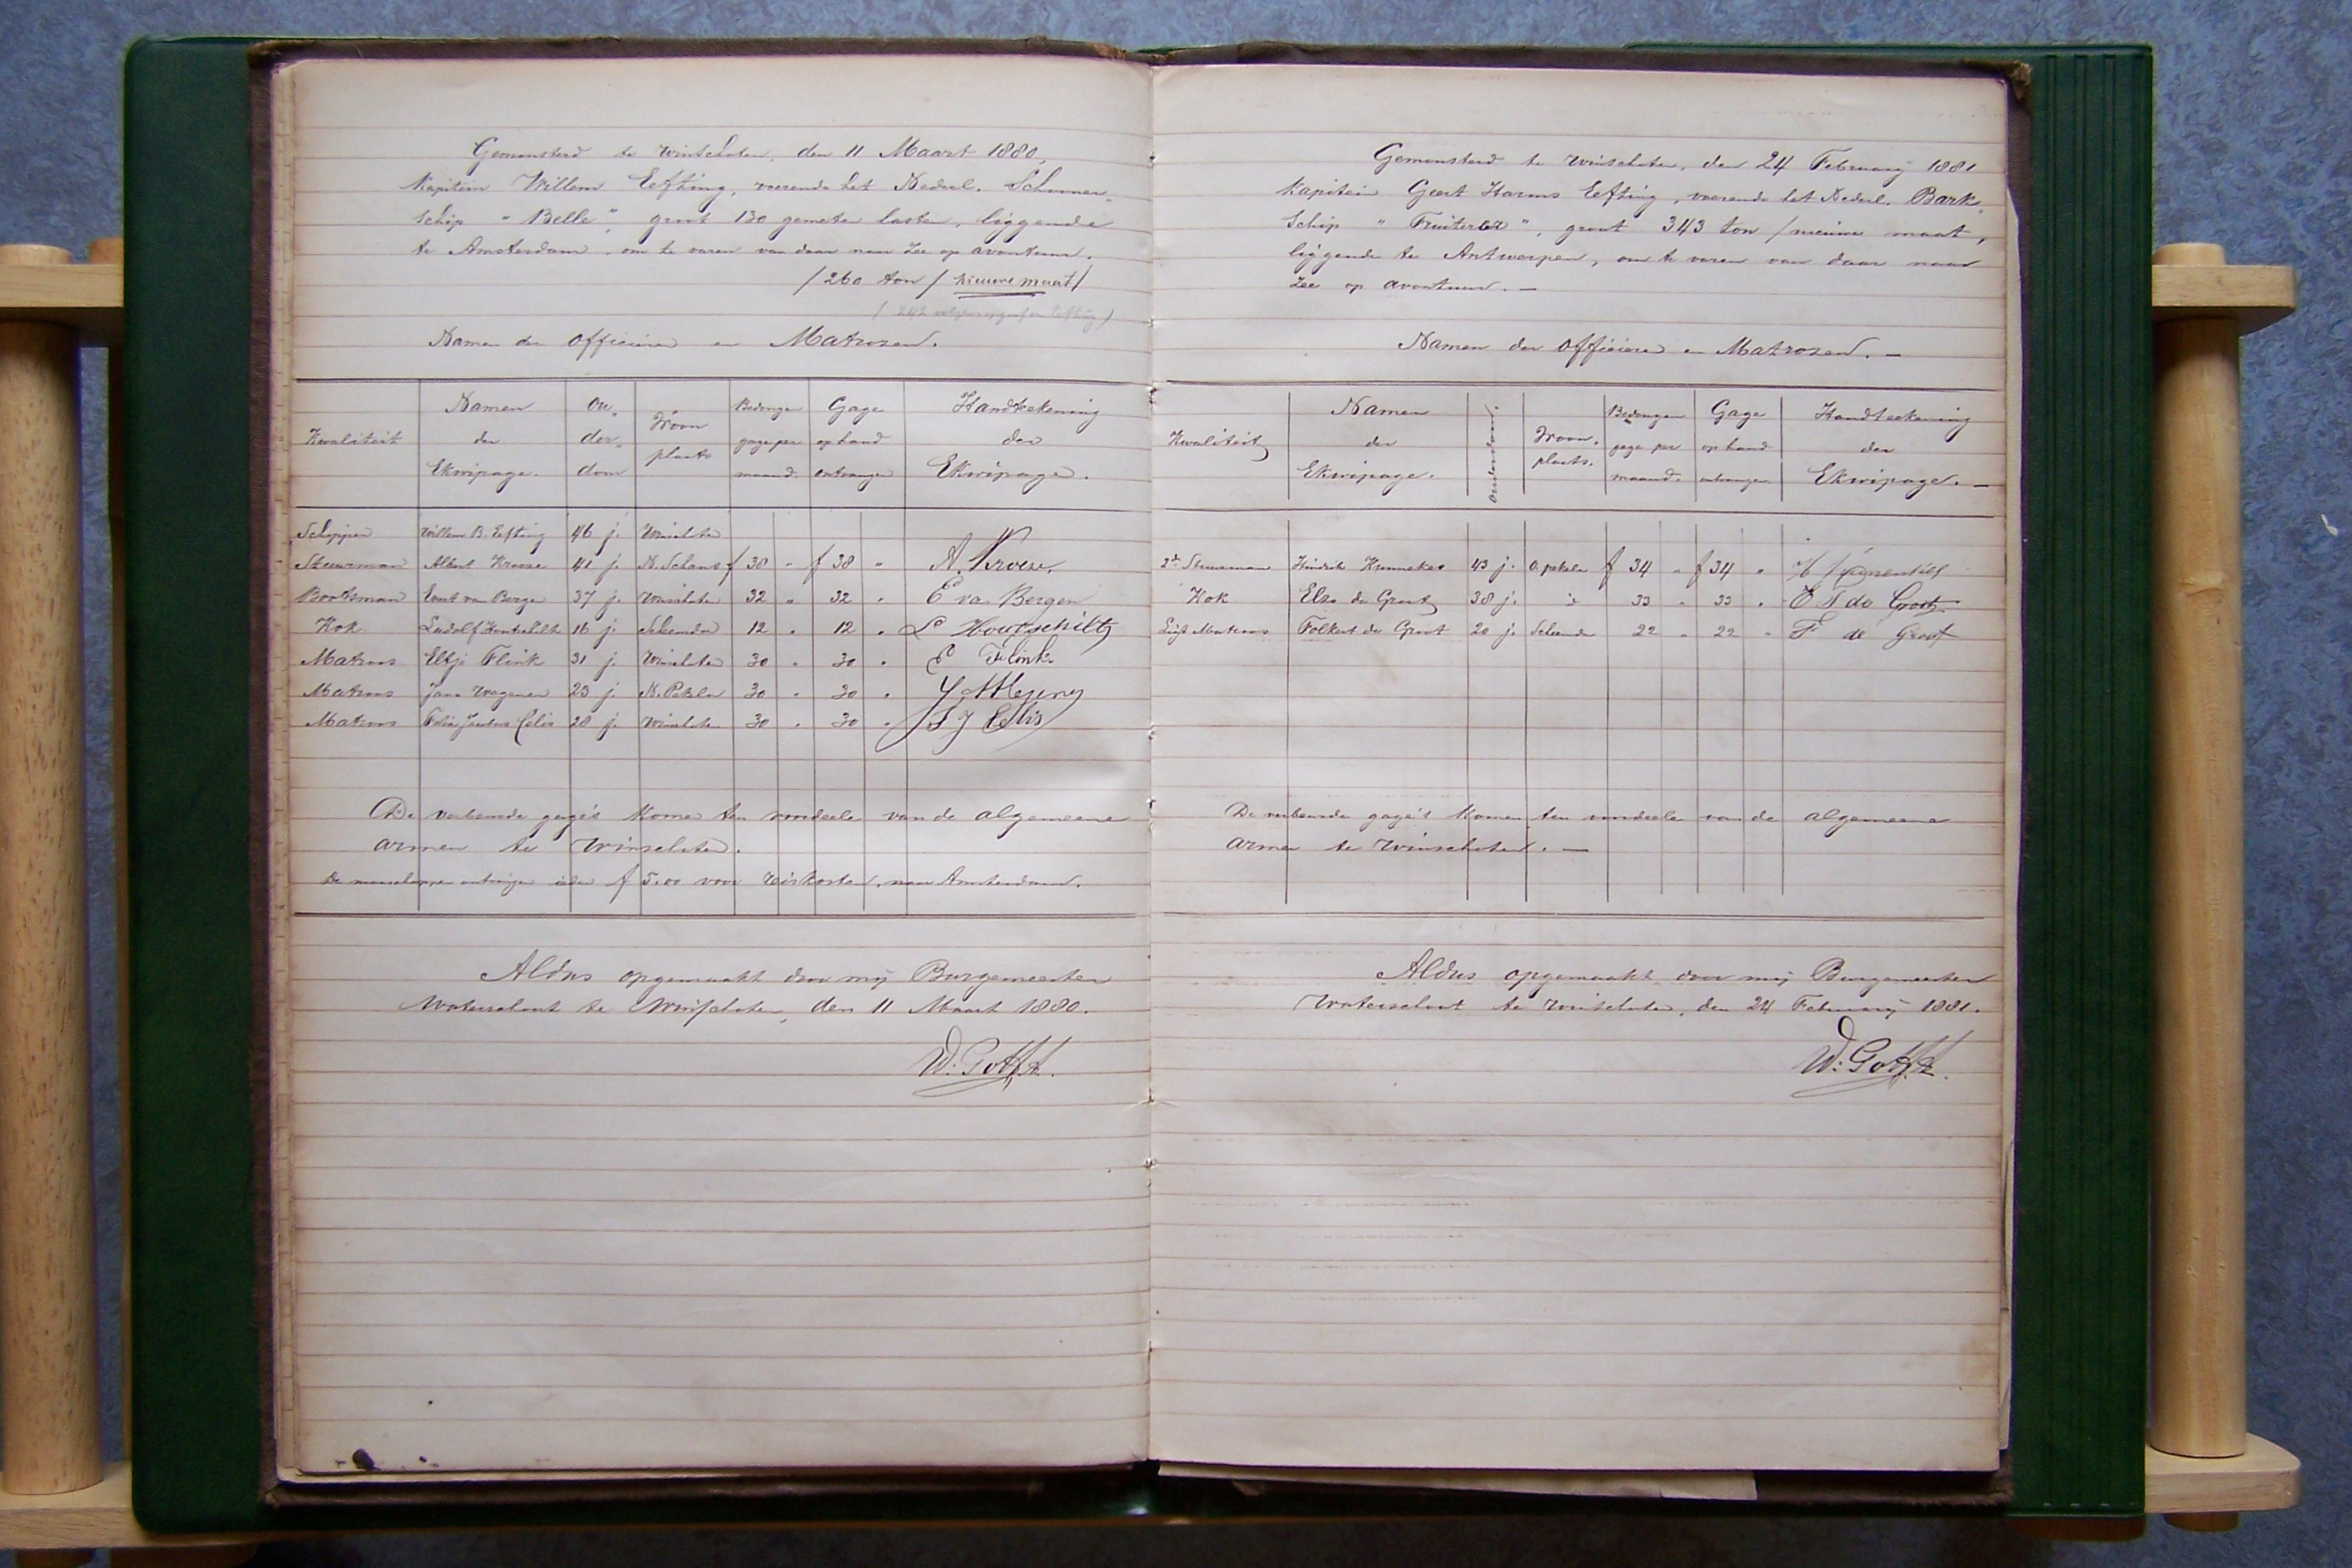 Gemonsterd te Winschoten, den 11 Maart 1880,
Kapitein Willem Eefting, voerende het Nederl. Schoener
Schip "Belle", groot 130 gemeten lasten, liggende
te Amsterdam, om te varen van daar naar Zee op avontuur.
/260 ton/ nieuwe maat/
Namen der Officieren en Matrozen.
Kwaliteit Namen der Ekwipage. Ouderdom Woonplaats Bedongen gage per maand. Gage op hand ontvangen Handteekening der Ekwipage.
Schipper Willem B. Eefting 46 j. Winschoten
Stuurman Albert Kroese 41 j. N. Schans f 38 " f 38 " A. Kroese.
Bootsman Evert van Bergen 37 j. Winschoten 32 " 32 " E van Bergen
Kok Ludolf Houtschilt 16 j. Scheemda 12 " 12 " L Houtschilt
Matroos Eltje Flink 31 j. Winschoten 30 " 30 " E Flink
Matroos Jans 23 j. N. Pekela 30 " 30 "
Matroos Jacobus Celis 28 j. Winschoten 30 " 30 " F J Celis
De verbeurde gage's komen ten voordeele van de algemeene
armen te Winschoten.
De manschappen ontvangen ieder f 5.00 voor reiskosten, naar Amsterdam.
Aldus opgemaakt door mij Burgemeester
Waterschout te Winschoten, den 11 Maart 1880.
Gemonsterd te Winschoten, den 24 February 1881
Kapitein Geert Harms Eefting, voerende het Nederl. Bark
Schip "Fruiterer", groot 343 ton /nieuwe maat,
liggende te Antwerpen, om te varen van daar naar
Zee op avontuur. —
Namen der Officieren en Matrozen. —
Kwaliteit Namen der Ekwipage. Ouderdom. Woonplaats. Bedongen gage per maand. Gage op hand ontvangen. Handteekening der Ekwipage. —
2de Stuurman Hindrik 43 j. O. pekela f 34 " f 34 "
Kok Elzo de Groot 38 j. 33 " 33 " de Groot
Ligt Matroos Folkert de Groot 20 j. Scheemda 22 " 22 " F de Groot
De verbeurde gage's komen ten voordeele van de algemeene
armen te Winschoten. —
Aldus opgemaakt door mij Burgemeester
Waterschout te Winschoten, den 24 February 1881.